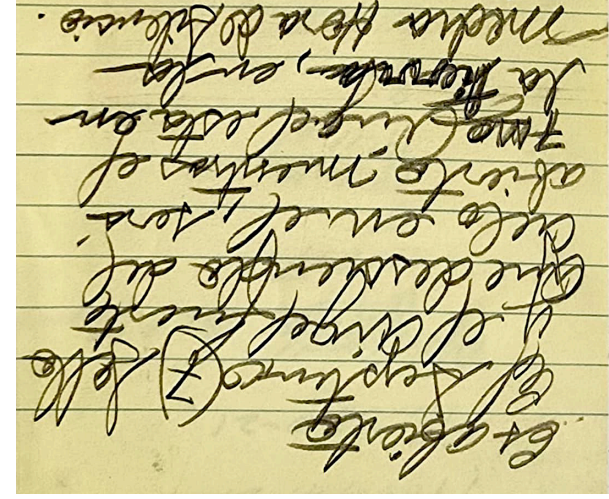 Es abierto
El septimo (7) sello
y el angel puesto
que desciende del
cielo en el, será
abierto mientras el
7mo Angel esta en
la tierra, en la
media Hora de silencio.